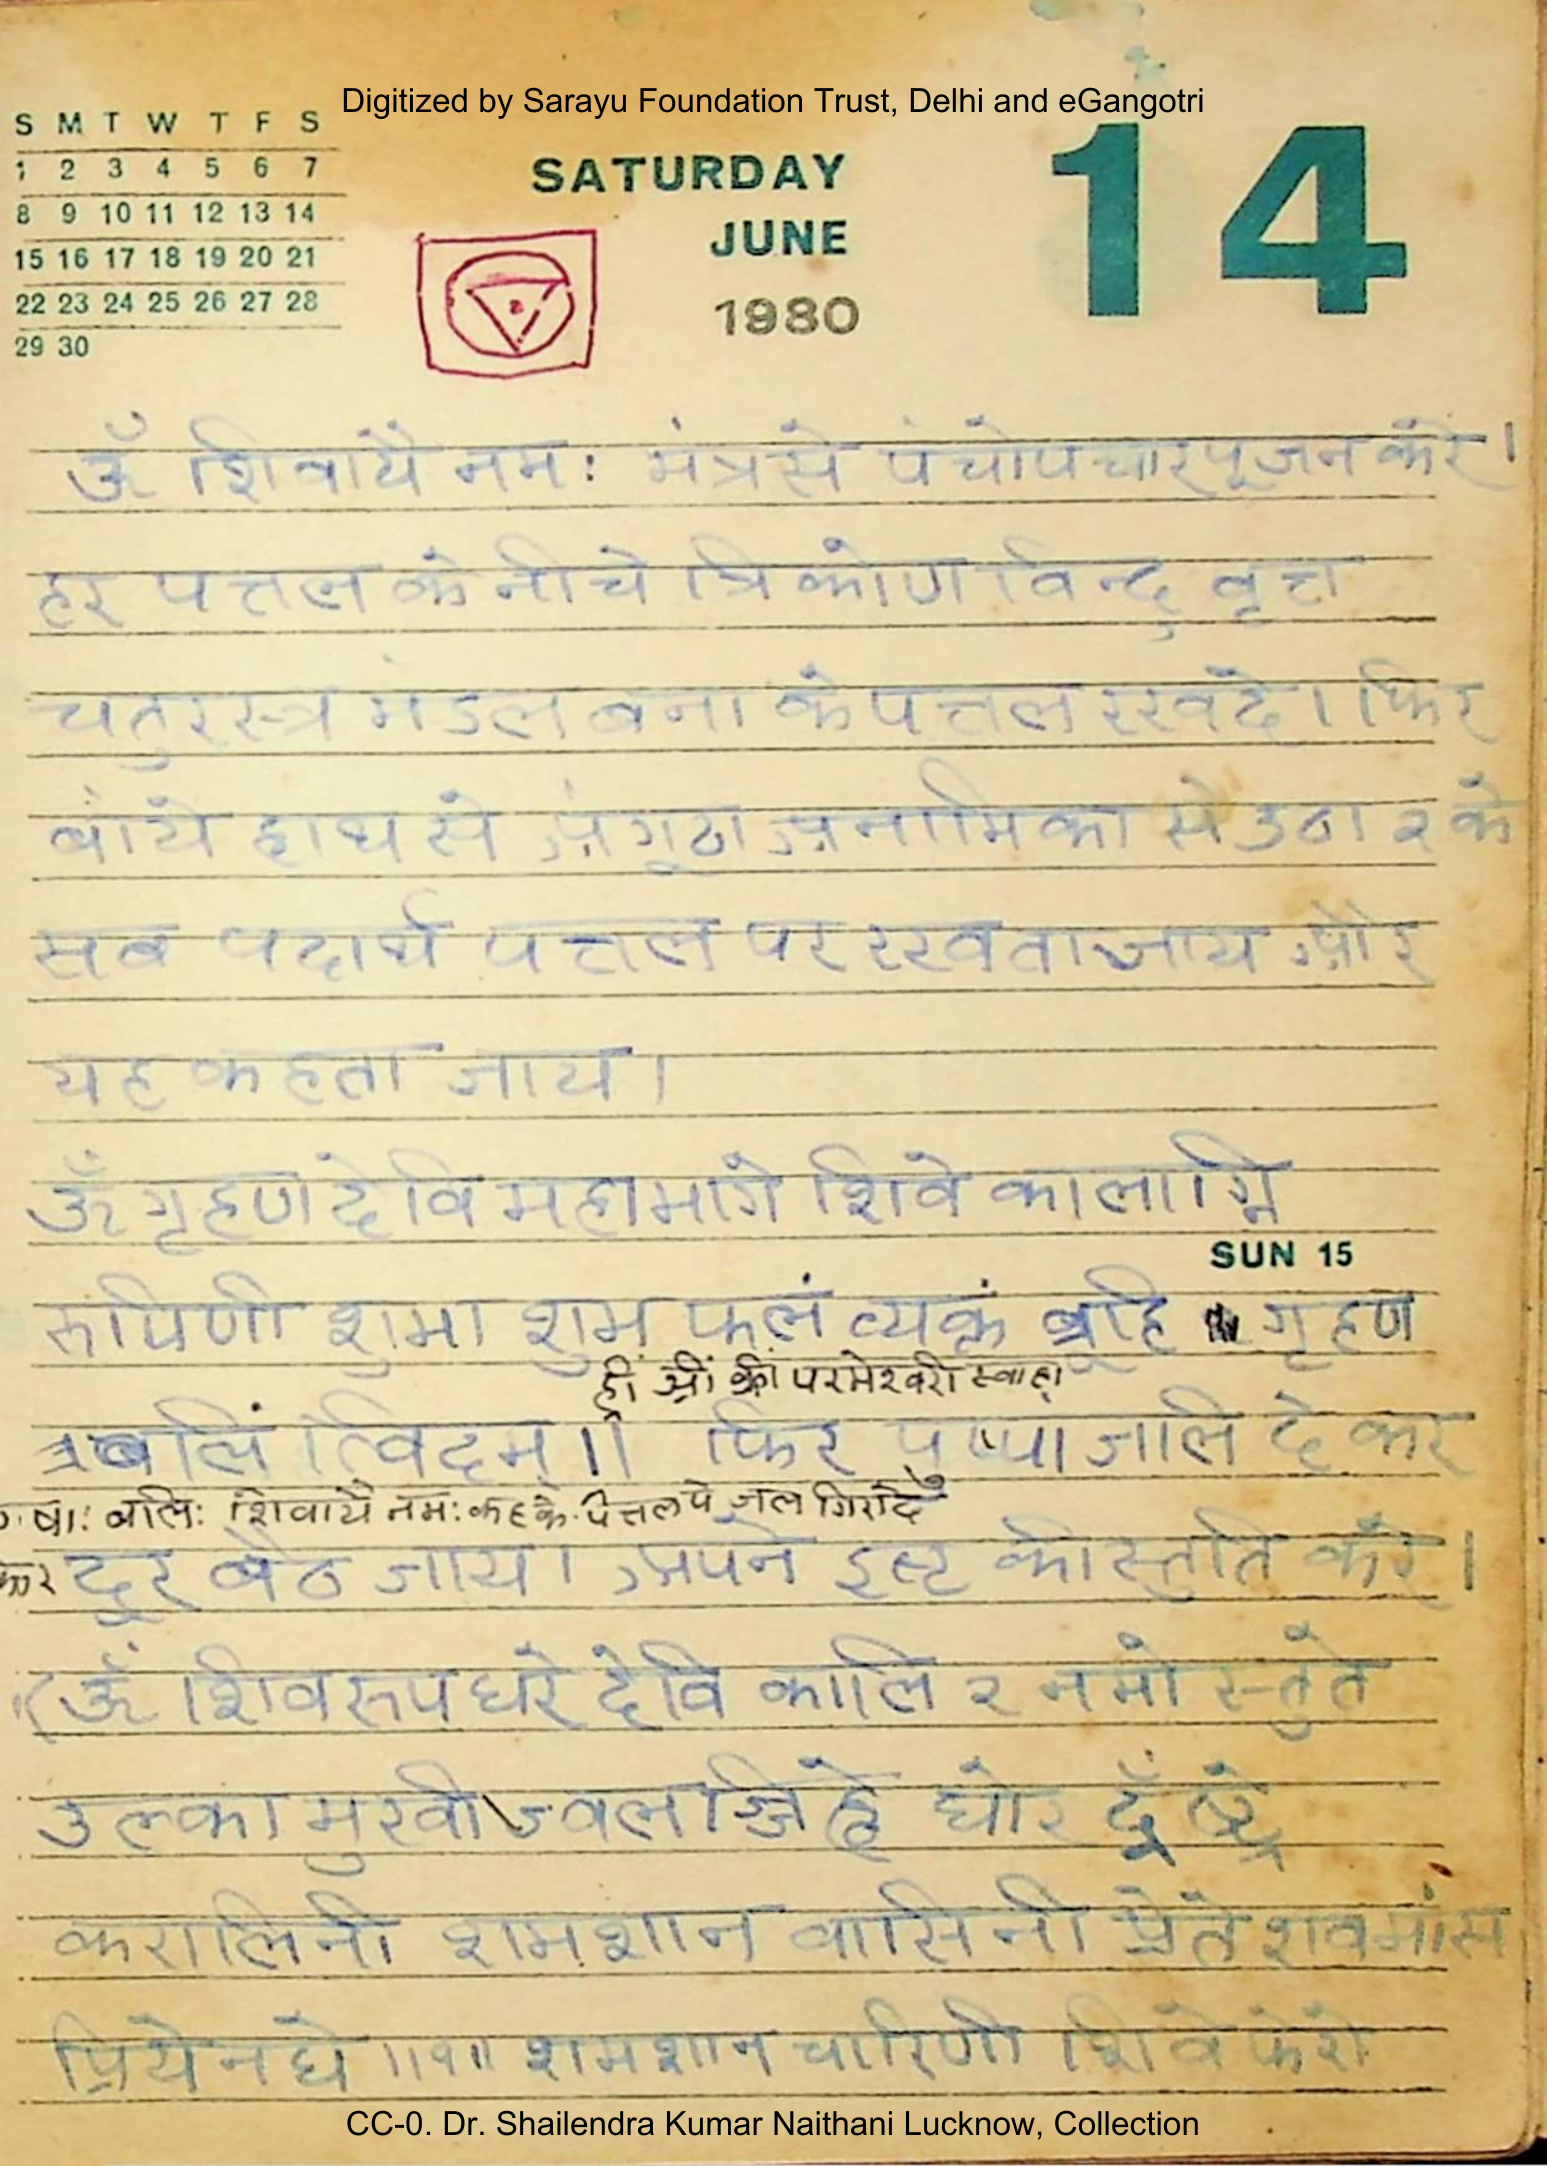 Digitized by Sarayu Foundation Trust, Delhi and eGangotri
S M T W T F S
1 2 3 4 5 6 7
8 9 10 11 12 13 14
15 16 17 18 19 20 21
22 23 24 25 26 27 28
29 30
SATURDAY
JUNE
1980
14
ॐ शिवायै नमः मंत्र से पंचोपचार पूजन करे।
हर पत्तल के नीचे त्रिकोण विन्दु वृत्त
चतुरस्त्र मंडल बना के पत्तल रखदे। फिर
बांये हाथ से अंगूठा अनामिका से उठा २ के
सब पदार्थ पत्तल पर रखता जाय और
यह कहता जाय।
ॐ गृहण देवि महाभागे शिवे कालाग्नि
SUN 15
रुपिणी शुभा शुभ फलं व्यक्तं ब्रूहि गृहण
ह्रीं श्रीं क्रीं परमेश्वरी स्वाहा
बलिं त्विदम्।। फिर पुष्पाजालि दे कर
षाः बलिः शिवायै नमः कहके पत्तल पे जल गिरादे
कर दूर बैठ जाय। अपने इष्ट की स्तुति करे।
(ॐ शिवरुप धरे देवि कालि २ नमो स्तुते
उल्का मुखी ज्वलज्जिह्वे घोर दंष्ट्रे
करालिनी शमशान वासिनी प्रेते शवमांस
प्रियेनघे ।।१।। शमशान चारिणी शिवे फेरो
CC-0. Dr. Shailendra Kumar Naithani Lucknow, Collection